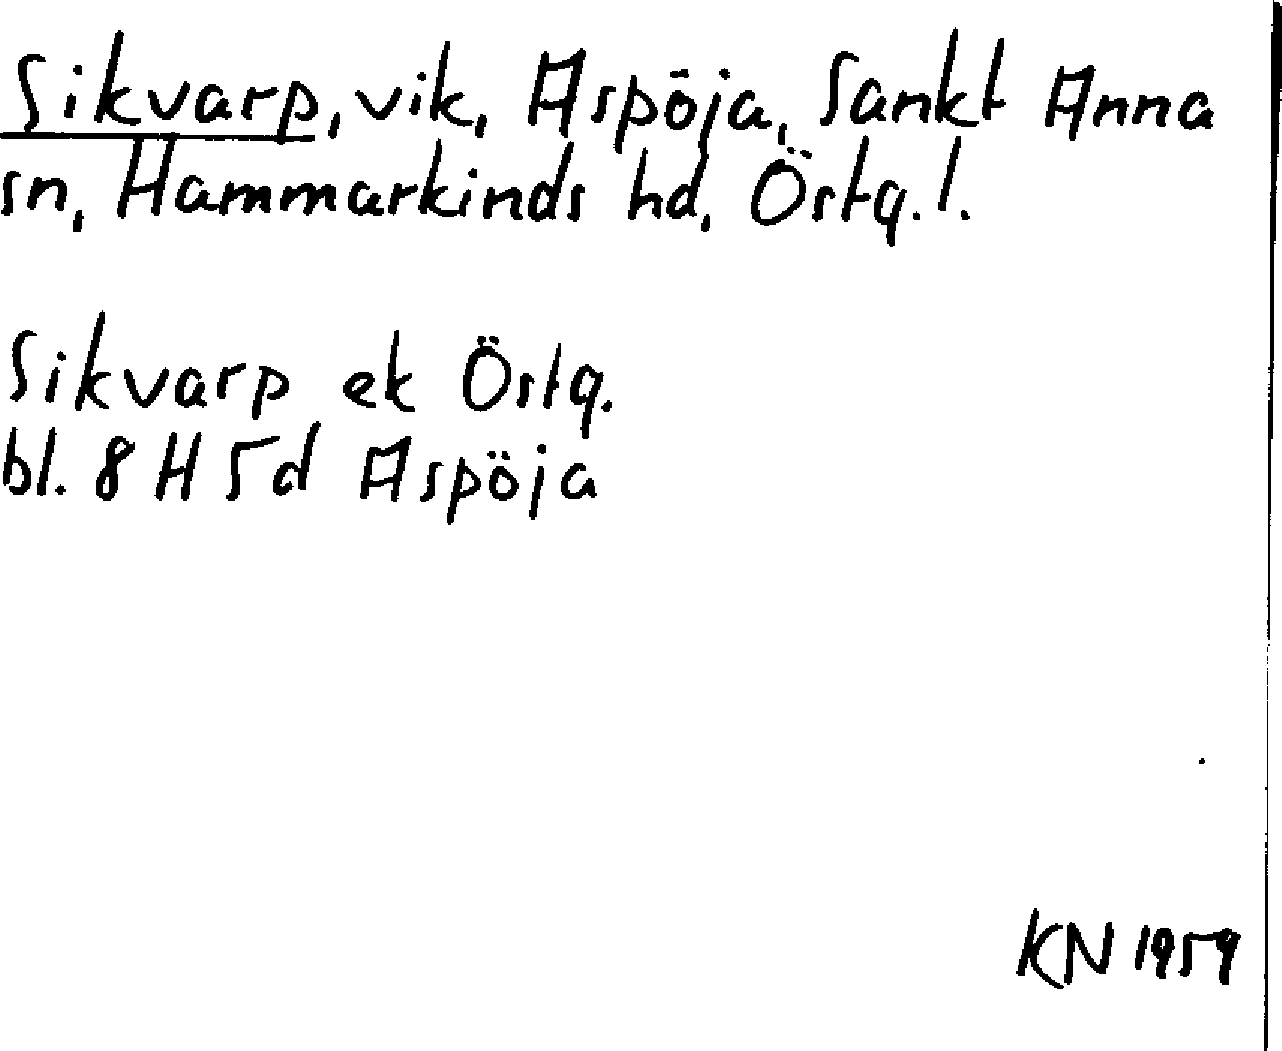 Sikvarp, vik, Aspöja, Sankt Anna
sn, Hammarkinds hd, Östg. l.
Sikvarp ek Östg.
bl. 8 H 5d Aspöja
KN 1959